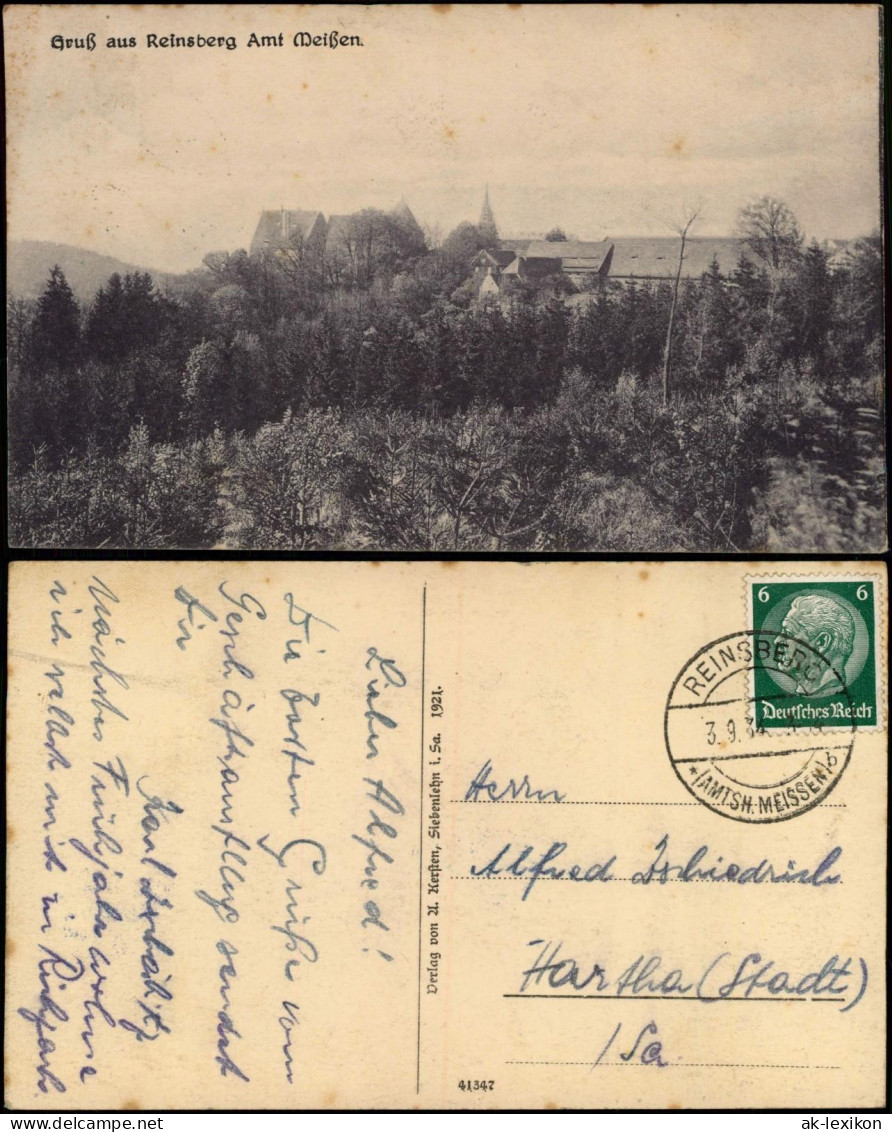 Gruß aus Reinsberg Amt Meißen.
Lieber Alfred!
Die besten Grüße vom
Geschäftsausflug sendet
Dir
Karl
Nächstes Frühjahr wohne
ich selbst mit in
Verlag von A. Kersten, Siebenlehn i. Sa. 1921.
6 6
Deutsches Reich
REINSBERG
3.9.34
*(AMTSH. MEISSEN) b
Herrn
Alfred Zschiedrich
Hartha (Stadt)
/Sa.
41347
ak-lexikon